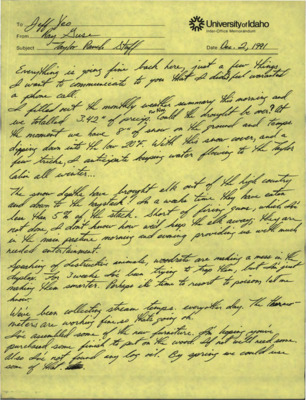 To Jeff Yeo
University of Idaho
Inter-Office Memorandum
From Ray Guse
Subject Taylor Ranch Stuff
Date Dec. 2, 1991
Everything is going fine back here, just a few things
I want to communicate to you that I didn't feel warranted
a phone call.
I filled out the monthly weather summary this morning and
we totalled 3.42" of precip. Could the drought be over? At
the moment we have 8" of snow on the ground and temps
dipping down into the low 20's F. With this snow cover, and a
few tricks, I anticipate keeping water flowing to the Taylor
Cabin all winter...
The snow depths have brought elk out of the high country
and down to the haystack! In a weeks time they have eaten
less than 5% of the stack. Short of firing guns, which I've
not done, I don't know how we'll keep the elk away. They are
in the main pasture morning and evening providing us with much
needed entertainment.
Speaking of destructive animals, woodrats are making a mess in the
I've been trying to trap them, but I'm just
making them smarter. Perhaps its time to resort to poison, let me
know.
We've been collecting stream temps. everyother day. The thermo-
meters are working fine, so that's going ok.
I've assembled some of the new furniture. I'm hoping you've
purchased some finish to put on the wood.
Also I've not found any log oil. By spring we could use
some of that.